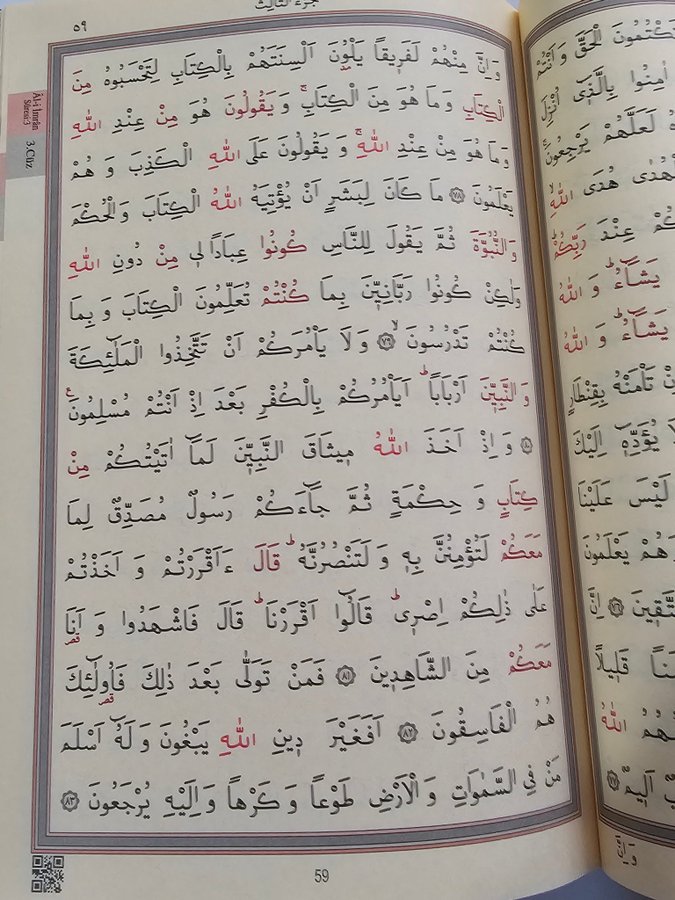 جزء الثالث
٥٩
وَاِنَّ مِنْهُمْ لَفَر۪يقاً يَلْوُ۫نَ اَلْسِنَتَهُمْ بِالْكِتَابِ لِتَحْسَبُوهُ مِنَ
الْكِتَابِ وَمَا هُوَ مِنَ الْكِتَابِۚ وَيَقُولُونَ هُوَ مِنْ عِنْدِ اللّٰهِ
وَمَا هُوَ مِنْ عِنْدِ اللّٰهِۚ وَيَقُولُونَ عَلَى اللّٰهِ الْكَذِبَ وَهُمْ
يَعْلَمُونَ ﴿٧٨﴾ مَا كَانَ لِبَشَرٍ اَنْ يُؤْتِيَهُ اللّٰهُ الْكِتَابَ وَالْحُكْمَ
وَالنُّبُوَّةَ ثُمَّ يَقُولَ لِلنَّاسِ كُونُوا عِبَاداً ل۪ي مِنْ دُونِ اللّٰهِ
وَلٰكِنْ كُونُوا رَبَّانِيّ۪نَ بِمَا كُنْتُمْ تُعَلِّمُونَ الْكِتَابَ وَبِمَا
كُنْتُمْ تَدْرُسُونَۙ ﴿٧٩﴾ وَلَا يَأْمُرَكُمْ اَنْ تَتَّخِذُوا الْمَلٰٓئِكَةَ
وَالنَّبِيّ۪نَ اَرْبَاباًۜ اَيَأْمُرُكُمْ بِالْكُفْرِ بَعْدَ اِذْ اَنْتُمْ مُسْلِمُونَ۟
﴿٨٠﴾ وَاِذْ اَخَذَ اللّٰهُ م۪يثَاقَ النَّبِيّ۪نَ لَمَٓا اٰتَيْتُكُمْ مِنْ
كِتَابٍ وَحِكْمَةٍ ثُمَّ جَٓاءَكُمْ رَسُولٌ مُصَدِّقٌ لِمَا
مَعَكُمْ لَتُؤْمِنُنَّ بِه۪ وَلَتَنْصُرُنَّهُۜ قَالَ ءَاَقْرَرْتُمْ وَاَخَذْتُمْ
عَلٰى ذٰلِكُمْ اِصْر۪يۜ قَالُٓوا اَقْرَرْنَاۜ قَالَ فَاشْهَدُوا وَاَنَا۬
مَعَكُمْ مِنَ الشَّاهِد۪ينَ ﴿٨١﴾ فَمَنْ تَوَلّٰى بَعْدَ ذٰلِكَ فَاُو۬لٰٓئِكَ
هُمُ الْفَاسِقُونَ ﴿٨٢﴾ اَفَغَيْرَ د۪ينِ اللّٰهِ يَبْغُونَ وَلَهُٓ اَسْلَمَ
مَنْ فِي السَّمٰوَاتِ وَالْاَرْضِ طَوْعاً وَكَرْهاً وَاِلَيْهِ يُرْجَعُونَ ﴿٨٣﴾
59
Âl-i İmrân
Sûresi 3
3. Cüz
تَكْتُمُونَ الْحَقَّ وَاَنْتُمْ
اٰمِنُوا بِالَّذ۪ٓي اُنْزِلَ
لَعَلَّهُمْ يَرْجِعُونَۚ
هُدَى اللّٰهِۙ
عِنْدَ رَبِّكُمْۜ
يَشَٓاءُۜ وَاللّٰهُ
يَشَٓاءُۜ وَاللّٰهُ
تَأْمَنْهُ بِقِنْطَارٍ
يُؤَدِّه۪ٓ اِلَيْكَ
لَيْسَ عَلَيْنَا
وَهُمْ يَعْلَمُونَ
﴿٧٦﴾ اِنَّ
قَل۪يلاً
اللّٰهُ
اَل۪يمٌ ﴿٧٧﴾
وَاِنَّ